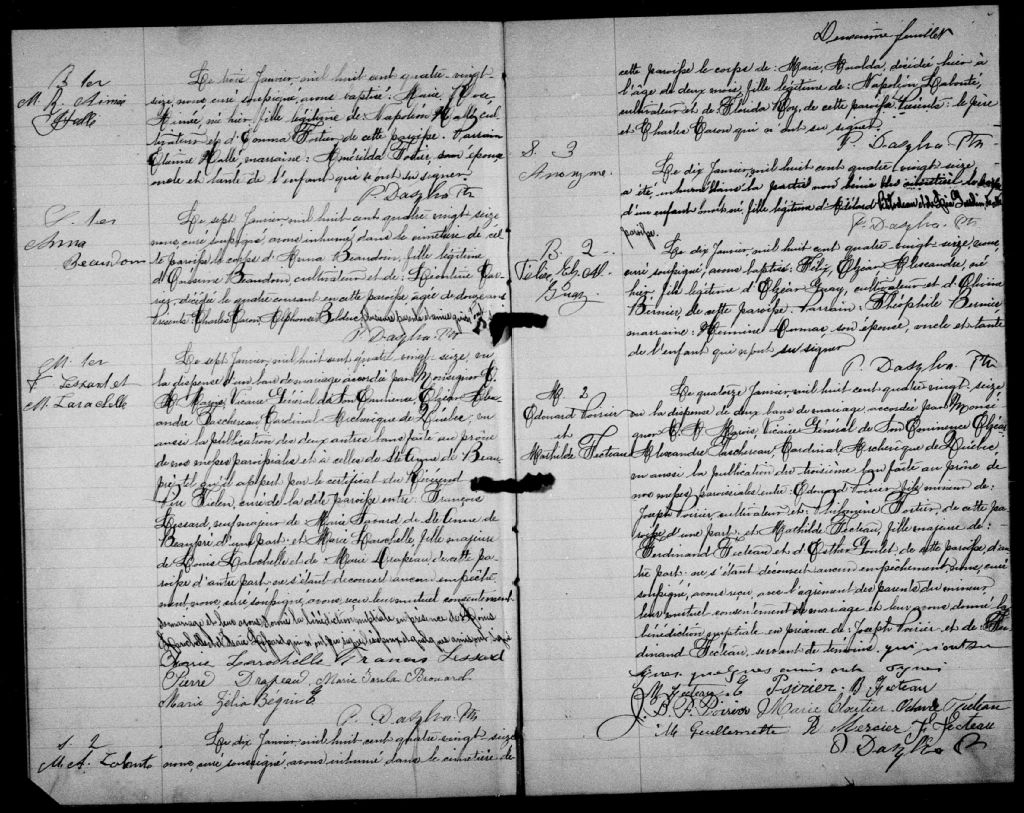 B. 1er
M. R. Aimée
Hallé
Le trois Janvier mil huit cent quatre-vingt-
seize, nous, curé soussigné, avons baptisé: Marie,
Aimée, née hier, fille légitime de: Napoléon Hallé, cul-
tivateur et d'Emma Fortier de cette paroisse. Parrain
Etienne Hallé, marraine: Amérilda Fortier, son épouse
oncle et tante de l'enfant qui
P. Daszlva Ptr
S. 1er
Anna
Beaudoin
Le sept Janvier, mil huit cent quatre vingt seize
nous, curé soussigné, avons inhumé, dans le cimetière de cet-
te paroisse le corps d'Anna Beaudoin, fille légitime
Beaudoin, cultivateur et de: Léontine
décédée le quatre courant en cette paroisse âgée de douze ans
Présents: Charles Caron, Alphonse Bolduc
P. Daszlva. Ptr
M. 1er
F. Lessard et
M. Larochelle
Le sept Janvier, mil huit cent quatre vingt seize, vu
la dispense d'un ban de mariage accordée par Monseigneur C.
A. Marois, Vicaire Général de Son Eminence, Elzéar Alex-
andre Taschereau Cardinal Archevêque de Québec; vu
aussi la publication des deux autres bans faite au prône
de nos messes paroissiales et à celles de Ste Anne de Beau-
pré tel qu'il appert par le certificat du Révérend
Père curé de la dite paroisse entre: François
Lessard, veuf majeur de: Marie Savard de Ste Anne de
Beaupré d'une part: et Marie Larochelle, fille majeure
de: Louis Larochelle et de: Marie Drapeau, de cette pa-
roisse d'autre part: ne s'étant découvert aucun empêche-
ment nous, curé soussigné, avons reçu leur mutuel consentement
de mariage et leur avons donné la bénédiction nuptiale en présence de
Marie Larochelle Francois Lessard
Pierre Drapeau Marie
Marie Zélia Bégin
P. Daszlva Ptr
S. 2
M. A. Labonté
Le dix Janvier, mil huit cent quatre-vingt seize
nous, curé soussigné, avons inhumé dans le cimetière de
Deuxième feuillet
cette paroisse le corps de: Marie, décédée hier à
l'âge de deux mois, fille légitime de: Napoléon Labonté,
cultivateur et de Florida Roy, de cette paroisse. Présents: le père
et Charles Caron qui
P. Daszlva Ptr
S. 3
Anonyme.
Le dix Janvier, mil huit cent quatre vingt seize,
a été inhumé dans la partie non bénie
d'un enfant fille légitime
paroisse.
P. Daszlva. Ptr
B. 2
Félix, El. A.
Guay
Le dix Janvier, mil huit cent quatre-vingt-seize, nous,
curé soussigné, avons baptisé: Félix, Elzéar Alexandre, né
hier, fils légitime d'Elzéar Guay, cultivateur et d'
Bernier, de cette paroisse. Parrain: Théophile Bernier,
marraine: Dumas, son épouse, oncle et tante
de l'enfant qui n'ont su signer
P. Daszlva. Ptr
M. 2
Edouard Poirier
et
Mathilde Fecteau
Le quatorze Janvier, mil huit cent quatre vingt, seize
vu la dispense de deux bans de mariage, accordée par Monsei-
gneur C. A. Marois, Vicaire Général de Son Eminence Elzéar
Alexandre Taschereau, Cardinal, Archevêque de Québec
vu aussi la publication du troisième ban faite au prône de
nos messes paroissiales entre: Edouard Poirier fils mineur de:
Joseph Poirier cultivateur et: Fortier, de cette pa-
roisse, d'une part: et Mathilde Fecteau, fille majeure de:
Ferdinand Fecteau et d'Esther Goulet de cette paroisse, d'au-
tre part: ne, s'étant découvert aucun empêchement nous, curé
soussigné, avons reçu, avec l'agrément des parents du mineur,
leur mutuel consentement de mariage et leur avons donné la
bénédiction nuptiale en présence de: Joseph Poirier et de: Fer-
dinand Fecteau, servant de témoins, qui n'ont su
signer quelques amis ont signé
M. Fecteau E. Poirier. Fecteau
J. B. P. Poirier Marie Cloutier. Fecteau
M. Mercier F. Fecteau
P. Daszlva Ptr